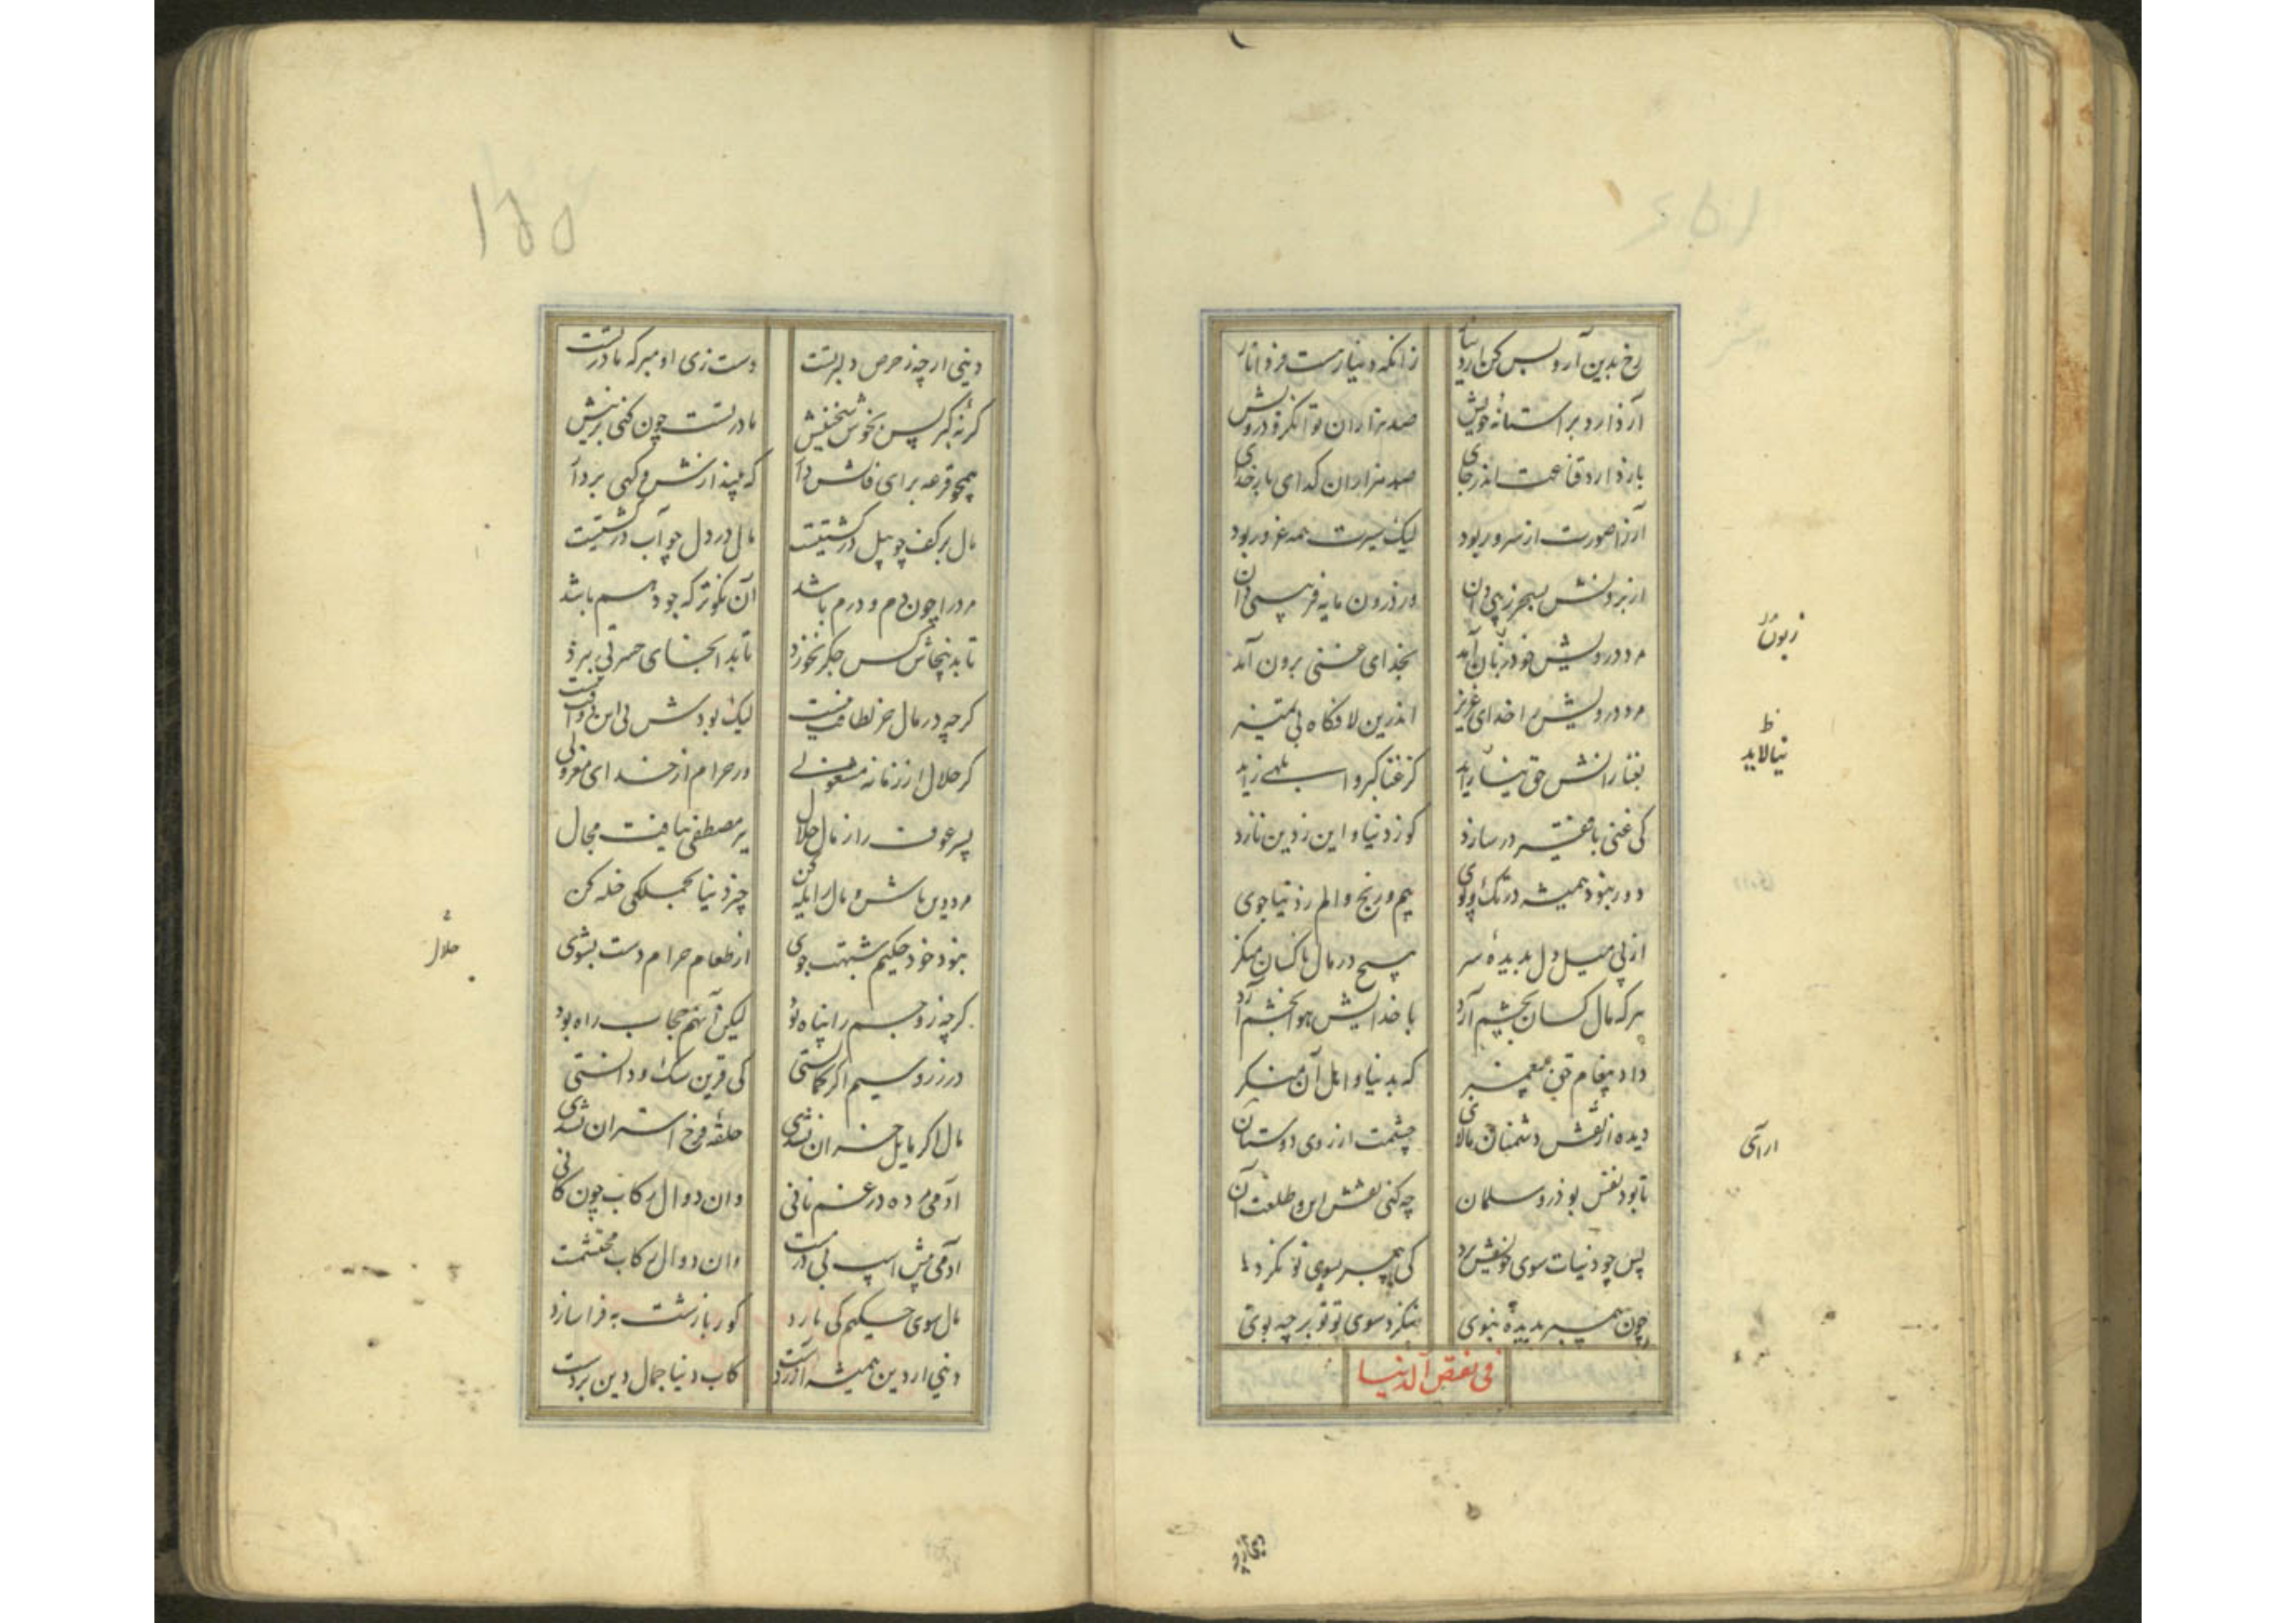 رخ بدین آر و بس کن از دنیا زانکه دنیا رهست فردا نار
آز دارد بر آستانهٔ خویش صد هزاران توانگر درویش
باز دارد قناعت اندر جای صد هزاران گدای بارخدای
آز را صورت از سرور بود لیک سیرت همه غرور بود
از برونش بهر زپی دان وز درون مایه فربهی دان
مرد درویش خود زیان آمد بخدای غنی برون آمد
مرد درویش را خدای عزیز اندرین لافگاه بی تمییز
بغنا زانش حق نیاراید کز غنا کبر و ابلهی زاید
کی غنی با فقیر در سازد کو ز دنیا و این ز دین نازد
دور نبود همیشه در تک و پوی بیم و رنج و الم ز دنیاجوی
از پی میل دل بدیدهٔ سر هیچ در مال ناکسان منگر
هر که مال کسان بچشم آرد با خدایش هوا بخشم آرد
داد پیغام حق به پیغمبر که بدنیا و اهل آن منگر
دیده از نقش دشمنان مالای چشمت از روی دوستان
تا بود نقش بوذر و سلمان چه کنی نقش این و طلعت آن
پس چو دنیات سوی خویش برد کی پیمبر بسوی تو نگرد
چون پیمبر بدیدهٔ نبوی ننگرد سوی تو تو بر چه بوی
فی نقص الدنیا
زبون
ظ
نیالاید
ارای
۱۵۵
دینی ار چه ز حرص دلبرتست دست زی او مبر که مادرتست
گر نه گبر پس بخوش سخنیش مادرتست چون کنی بزنیش
همچو قرعه برای فالش دار که بیندازش و گهی بردار
مال بر کف چو پیل در کشتیست مال در دل چو آب در کشتیست
مرد را چون دم و درم باشد آن نکوتر که جود هم باشد
تا بد ینجاش کس جگر نخورد تا بد انجای حسرتی نبرد
گرچه در مال جز لطافت نیست لیک بودش بی این دو آفت نیست
گر حلال از زمانه مشغولی ور حرام از خدای معزولی
پسر عوف را ز مال حلال بر مصطفی نیافت مجال
مرد دین باش و مال را یله کن چیز دنیا بجملگی خله کن
نبود خود حکیم شبهت جوی از طعام حرام دست بشوی
گرچه زر جسم را پناه بود لیکن آنهم حجاب راه بود
در زر و سیم اگر نکاستی کی قرین سگ و
مال اگر مایل خسران نشدی حلقهٔ فرج استران نشدی
آدمی مرده در غم نانی وان دوال رکاب چون کانی
آدمی پیش اسپ بی درمست وان دوال رکاب محتشمت
مال سوی حکیم کی یازد کور با زشت به فرا سازد
دینی از دین همیشه آزردست کاب دنیا جمال دین بردست
حلال